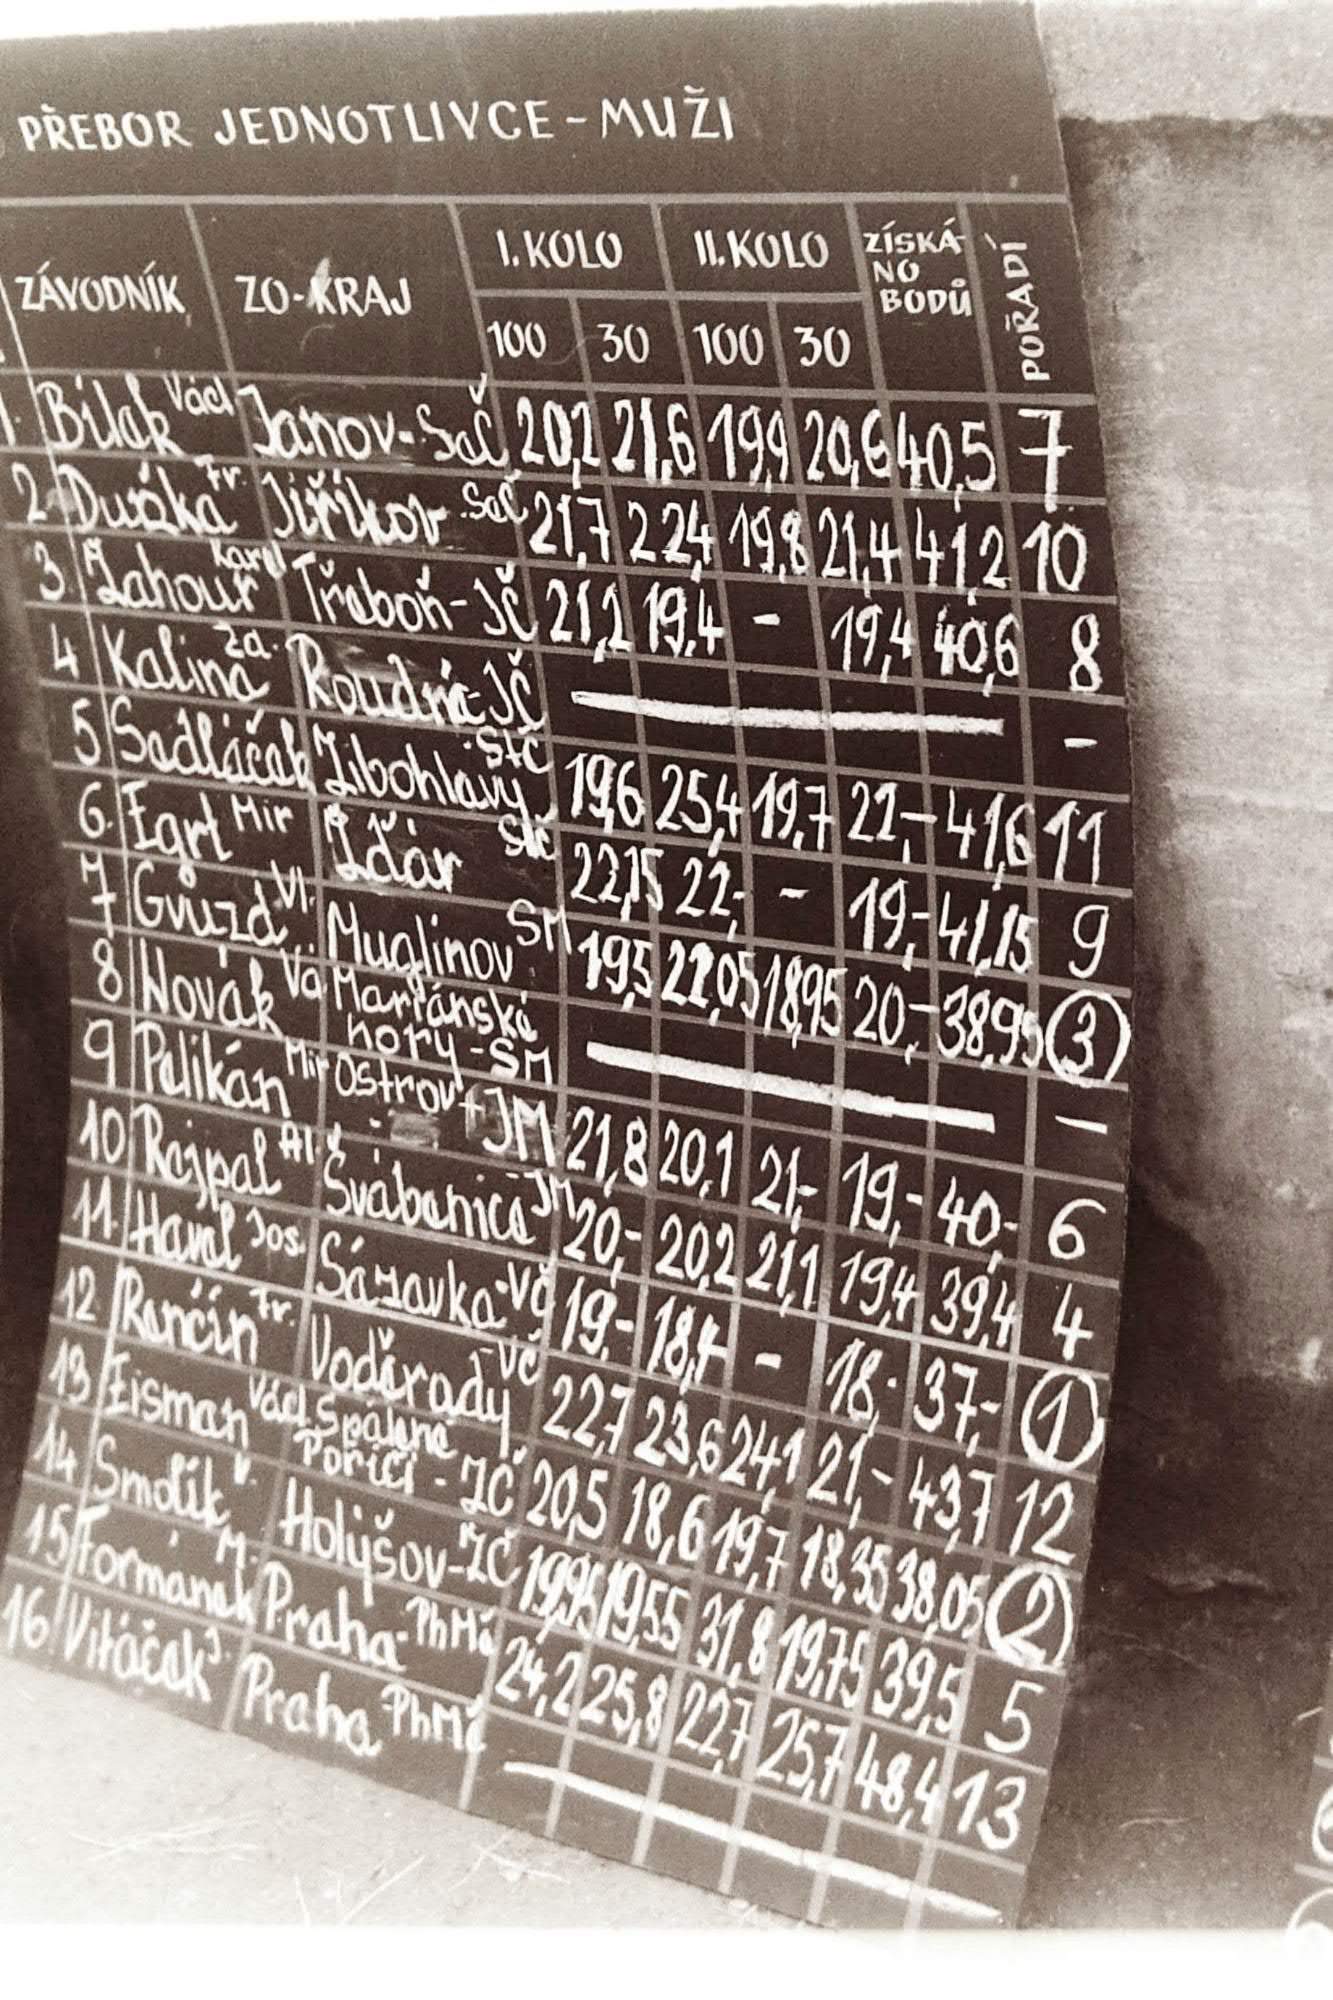 PŘEBOR JEDNOTLIVCE - MUŽI
ZÁVODNÍK ZO-KRAJ I. KOLO II. KOLO ZÍSKÁ-NO BODŮ POŘADÍ
100 30 100 30
1. Bílek Václ Janov-SeČ 20,2 21,6 19,9 20,6 40,5 7
2. Fr. Jiříkov SeČ 21,7 22,4 19,8 21,4 41,2 10
3. Zahour Karel Třeboň-JČ 21,2 19,4 - 19,4 40,6 8
4 Kalina Zd. Roudná-JČ -
5 Sedláček Zibohlavy StČ 19,6 25,4 19,7 22,- 41,6 11
6. Egrt Mir Žďár StČ 22,15 22,- - 19,- 41,15 9
7 Gvuzd Vl. Muglinov SM 19,5 22,05 18,95 20,- 38,95 3
8 Novák Vá Mariánské hory-SM -
9 Pelikán Mir Ostrov JM 21,8 20,1 21,- 19,- 40,- 6
10 Rajpal Al. Švábenice JM 20,- 20,2 21,1 19,4 39,4 4
11. Havel Jos. Sázavka-VČ 19,- 18,4 - 18,- 37,- 1
12. Rončín Fr. Voděrady-VČ 22,7 23,6 24,1 21,- 43,7 12
13 Eisman Václ Spálené Poříčí-ZČ 20,5 18,6 19,7 18,35 38,05 2
14 Smolík V. Holýšov-ZČ 19,95 19,55 31,8 19,75 39,5 5
15 Formánek M. Praha-PhMě 24,2 25,8 22,7 25,7 48,4 13
16 Vitáček J. Praha PhMě